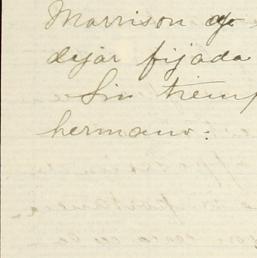 Morrison
dejar fijada
Sin tiemp
hermano: